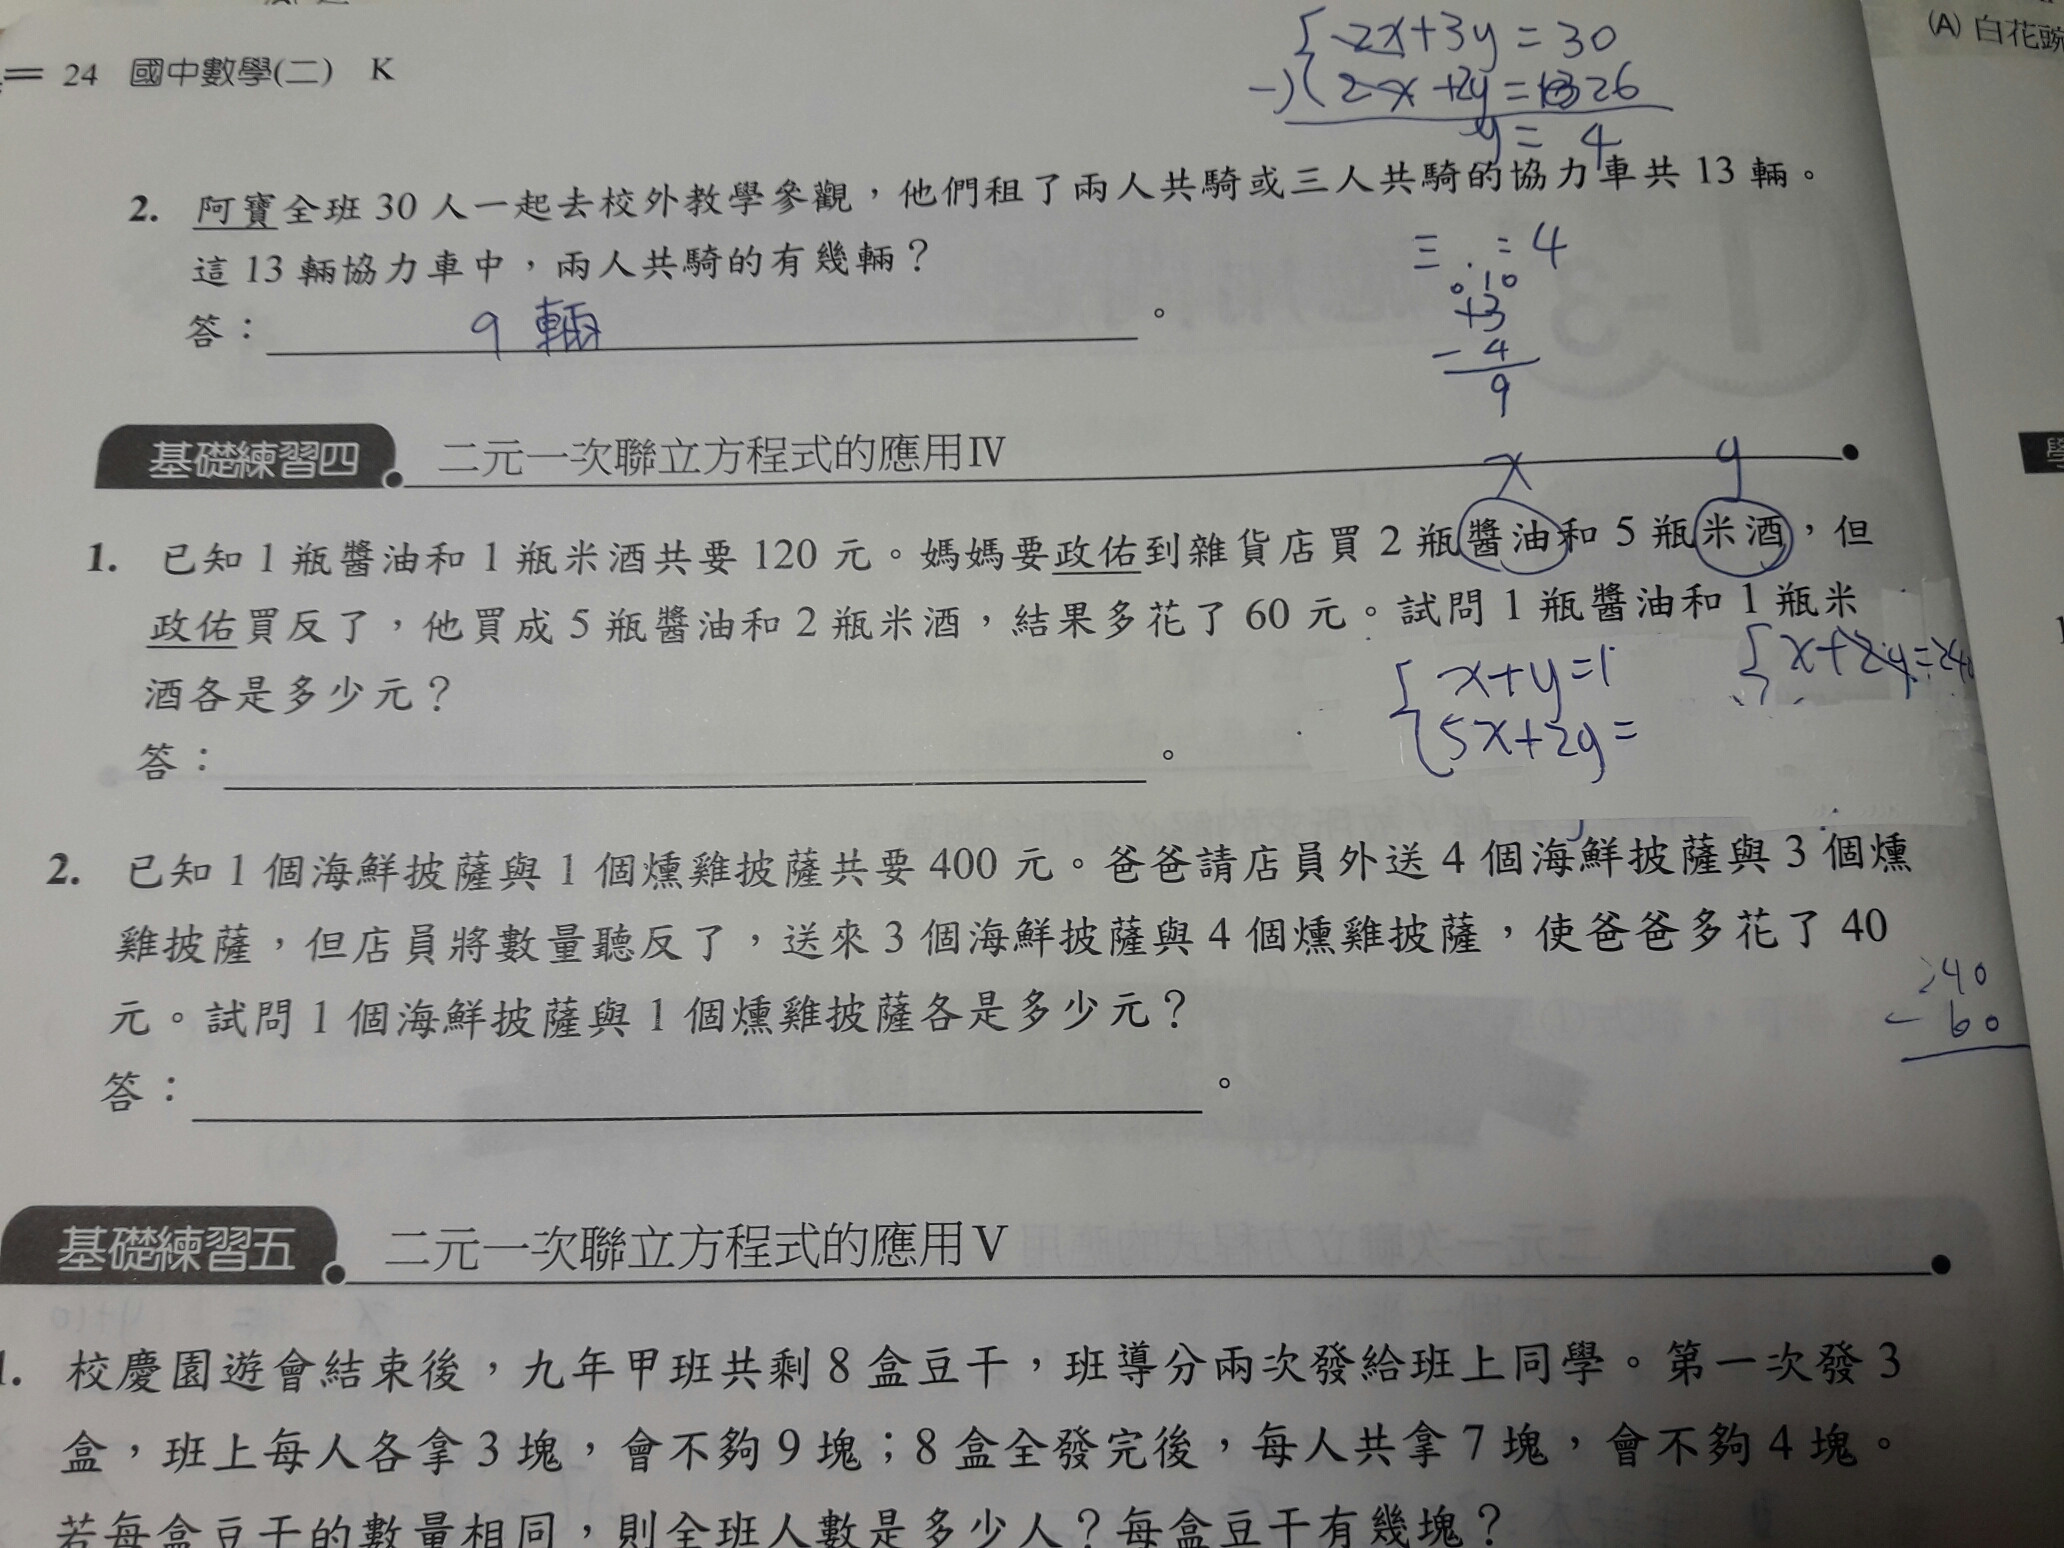 (A) 白花豌
24 國中數學(二) K
2x+3y=30
-) 2x+2y=26
y=4
2. 阿寶全班 30 人一起去校外教學參觀，他們租了兩人共騎或三人共騎的協力車共 13 輛。
這 13 輛協力車中，兩人共騎的有幾輛？
三 : = 4
答： 9 輛 。
10
+3
- 4
9
基礎練習四 二元一次聯立方程式的應用Ⅳ
x y
1. 已知 1 瓶醬油和 1 瓶米酒共要 120 元。媽媽要政佑到雜貨店買 2 瓶醬油和 5 瓶米酒，但
政佑買反了，他買成 5 瓶醬油和 2 瓶米酒，結果多花了 60 元。試問 1 瓶醬油和 1 瓶米
酒各是多少元？
x+y=1
x+2y=240
5x+2y=
答： 。
2. 已知 1 個海鮮披薩與 1 個燻雞披薩共要 400 元。爸爸請店員外送 4 個海鮮披薩與 3 個燻
雞披薩，但店員將數量聽反了，送來 3 個海鮮披薩與 4 個燻雞披薩，使爸爸多花了 40
元。試問 1 個海鮮披薩與 1 個燻雞披薩各是多少元？
240
- 60
答： 。
基礎練習五 二元一次聯立方程式的應用Ⅴ
1. 校慶園遊會結束後，九年甲班共剩 8 盒豆干，班導分兩次發給班上同學。第一次發 3
盒，班上每人各拿 3 塊，會不夠 9 塊；8 盒全發完後，每人共拿 7 塊，會不夠 4 塊。
若每盒豆干的數量相同，則全班人數是多少人？每盒豆干有幾塊？